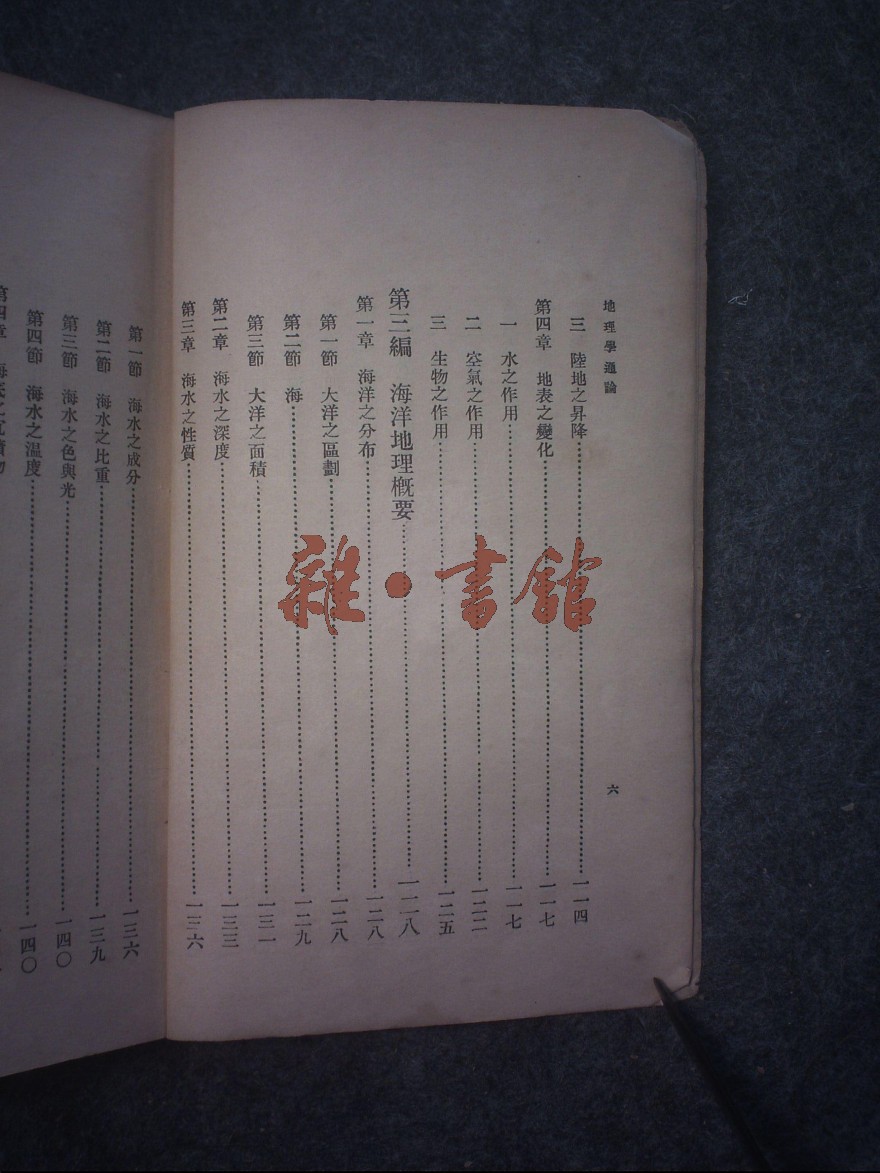 地理學通論
六
三　陸地之昇降…………一一四
第四章　地表之變化…………一一七
一　水之作用…………一一七
二　空氣之作用…………一二二
三　生物之作用…………一二五
第三編　海洋地理概要…………一二八
第一章　海洋之分布…………一二八
第一節　大洋之區劃…………一二八
第二節　海…………一二九
第三節　大洋之面積…………一三一
第二章　海水之深度…………一三三
第三章　海水之性質…………一三六
第一節　海水之成分…………一三六
第二節　海水之比重…………一三九
第三節　海水之色與光…………一四〇
第四節　海水之溫度…………一四〇
第四章
雜・書館